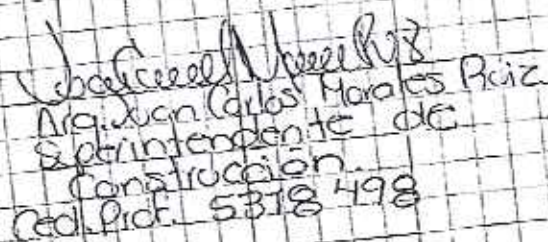 Arq. Juan Carlos Morales Ruiz
Superintendente de
Construcción.
Ced. Prof. 5318498